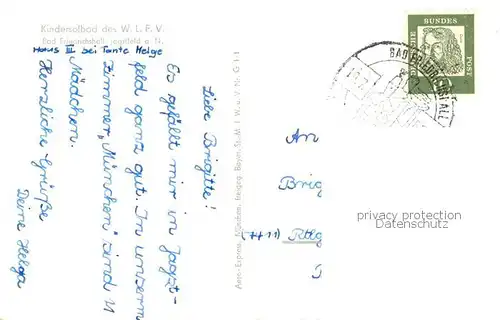 Kindersolbad des W. L. F. V.
Bad Friedrichshall-Jagstfeld a. N.
Haus III bei Tante Helga
Liebe Brigitte!
Es gefällt mir in Jagst-
feld ganz gut. In unserm
Zimmer „München" sind 11
Mädchen.
Herzliche Grüße
Deine Helga
An
Brig
Rtlg
DEUTSCHE
BUNDES
POST
BAD FRIEDRICHSHALL
privacy protection
Datenschutz